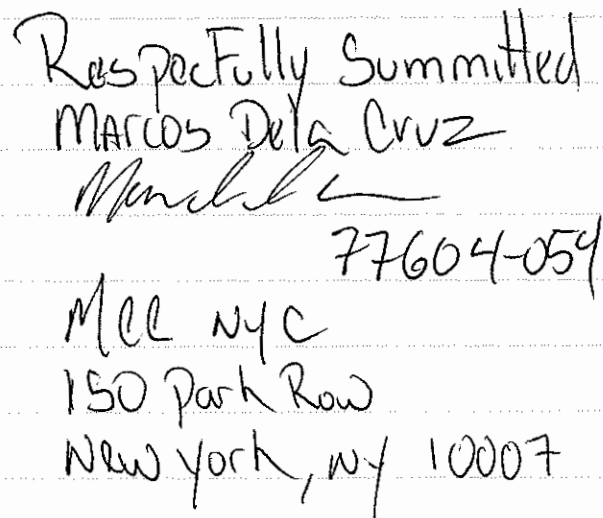 RespecFully Summitted
Marcos Dela Cruz
77604-054
MCC NYC
150 Park Row
New York, NY 10007